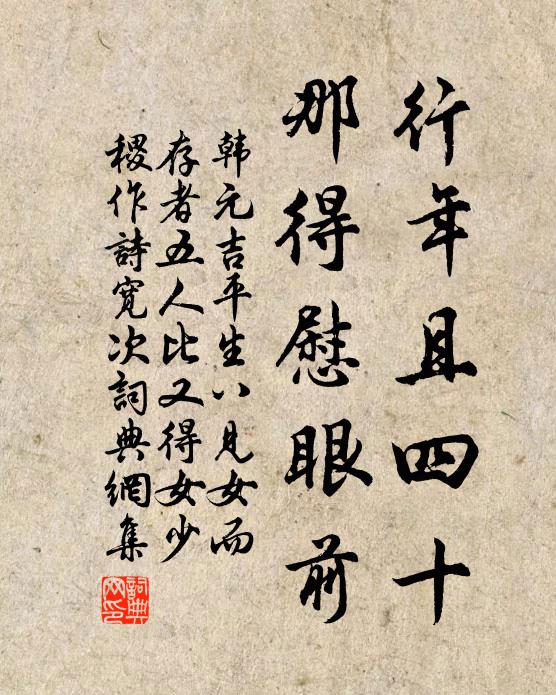 行年且四十
那得慰眼前
韓元吉平生八見女而
存者五人比又得女少
稷作詩寬次詞典網集
詞典
网印